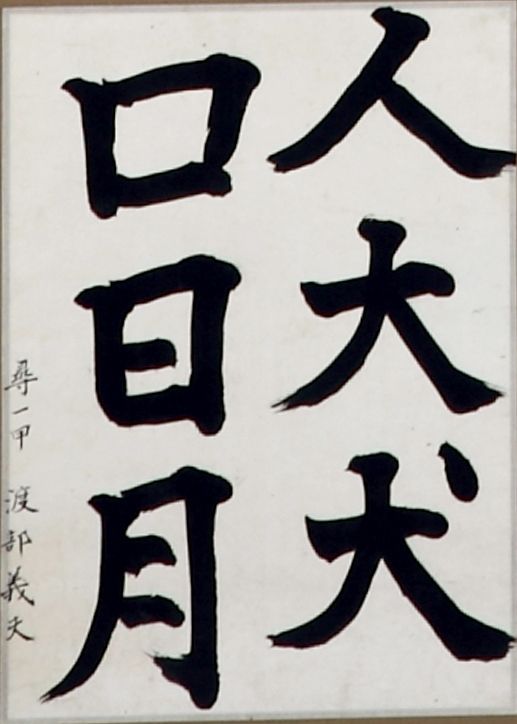 人大犬
口日月
尋一甲 渡部義夫